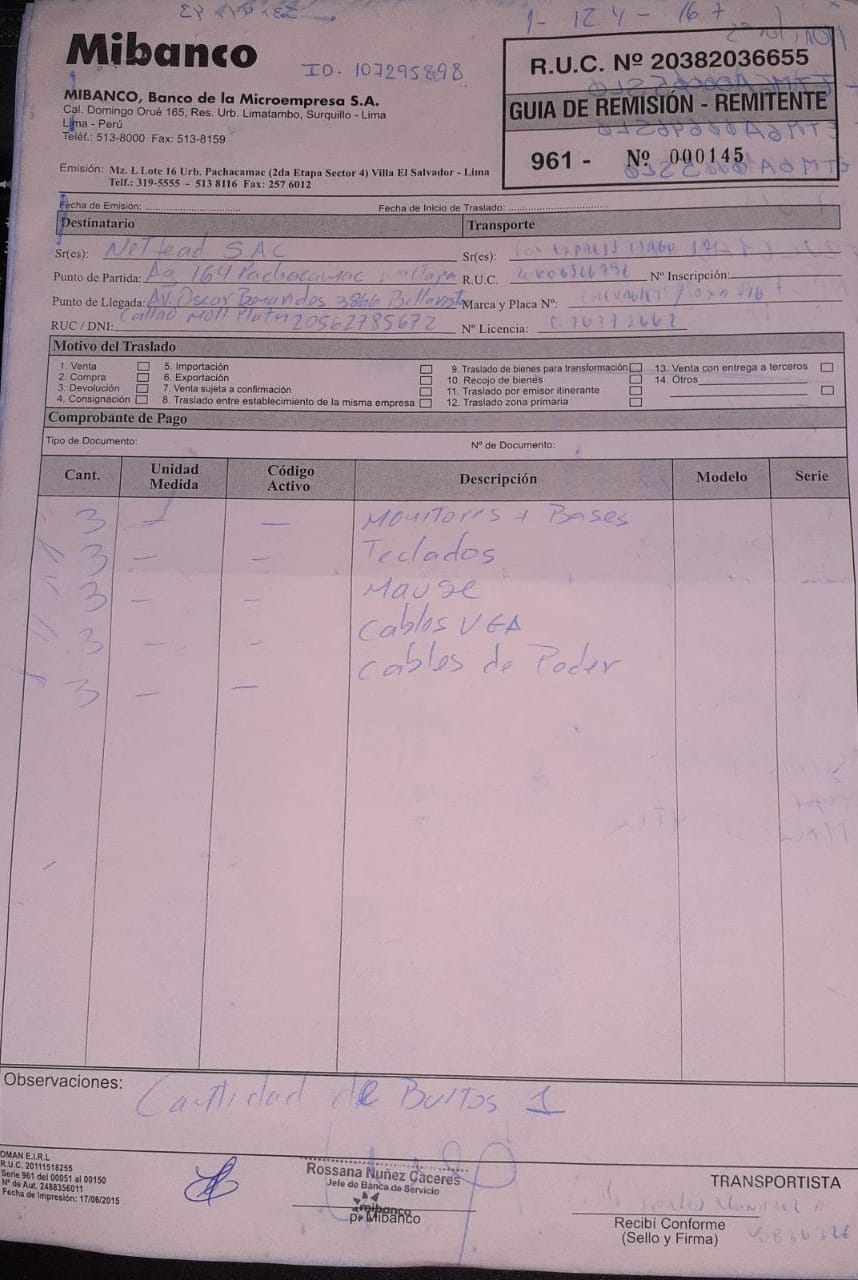 Mibanco
ID. 107295898
MIBANCO, Banco de la Microempresa S.A.
Cal. Domingo Orué 165, Res. Urb. Limatambo, Surquillo - Lima
Lima - Perú
Teléf.: 513-8000 Fax: 513-8159
Emisión: Mz. L Lote 16 Urb. Pachacamac (2da Etapa Sector 4) Villa El Salvador - Lima
Telf.: 319-5555 - 513 8116 Fax: 257 6012
R.U.C. Nº 20382036655
GUIA DE REMISIÓN - REMITENTE
961 - Nº 000145
Fecha de Emisión: Fecha de Inicio de Traslado:
Destinatario Transporte
Sr(es): Nettead SAC Sr(es):
Punto de Partida: Ag 164 Pachacamac R.U.C. Nº Inscripción:
Punto de Llegada: AV. Oscar 3866 Bellavista Marca y Placa Nº:
Callao Moll Plata
RUC / DNI: 20562785672 Nº Licencia:
Motivo del Traslado
1. Venta 5. Importación 9. Traslado de bienes para transformación 13. Venta con entrega a terceros
2. Compra 6. Exportación 10. Recojo de bienes 14. Otros
3. Devolución 7. Venta sujeta a confirmación 11. Traslado por emisor itinerante
4. Consignación 8. Traslado entre establecimiento de la misma empresa 12. Traslado zona primaria
Comprobante de Pago
Tipo de Documento: Nº de Documento:
Cant. Unidad Medida Código Activo Descripción Modelo Serie
3 — — Monitores + Bases
3 — — Teclados
3 — — Mause
3 — — Cables VGA
3 — — Cables de Poder
Observaciones: Cantidad de Bultos 1
OMAN E.I.R.L
R.U.C. 20111518255
Serie 961 del 00051 al 00150
Nº de Aut. 2488356011
Fecha de Impresión: 17/06/2015
Rossana Nuñez Cáceres
Jefe de Banca de Servicio
mibanco
p. Mibanco
TRANSPORTISTA
Recibí Conforme
(Sello y Firma)